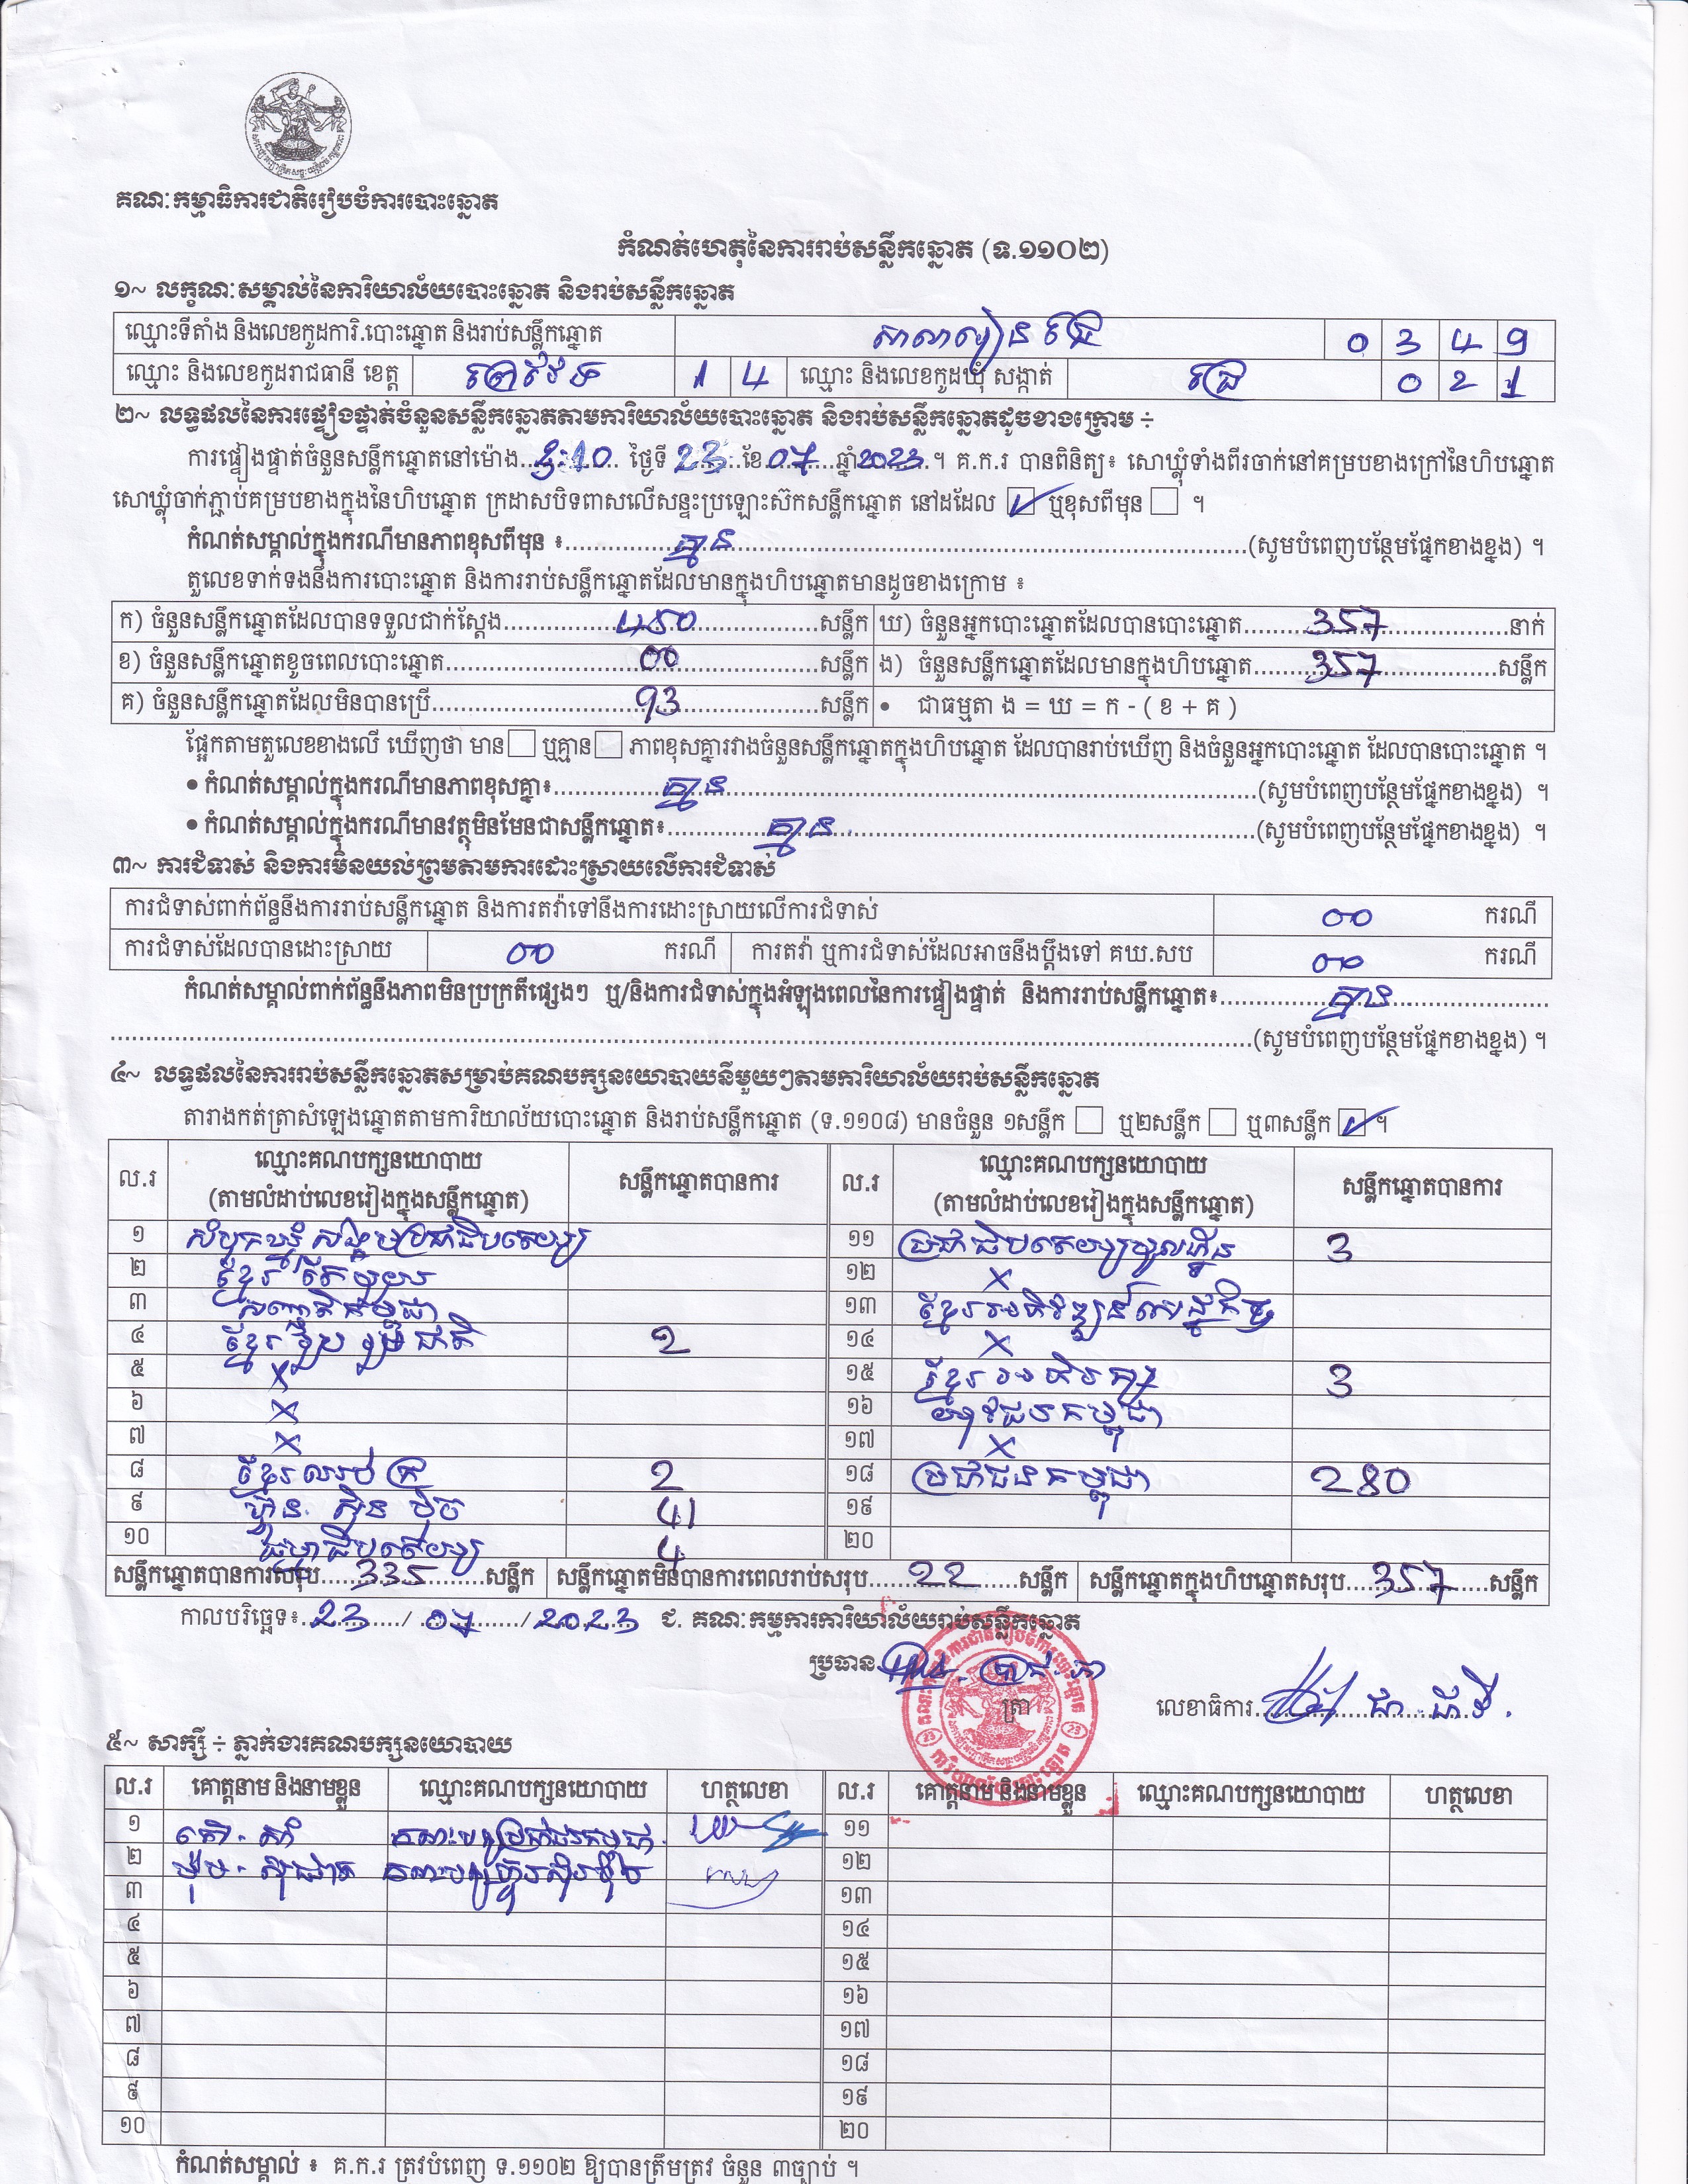 គណៈកម្មាធិការជាតិរៀបចំការបោះឆ្នោត
កំណត់ហេតុនៃការរាប់សន្លឹកឆ្នោត (ទ.១១០២)
១~ លក្ខណៈសម្គាល់នៃការិយាល័យបោះឆ្នោត និងរាប់សន្លឹកឆ្នោត
ឈ្មោះទីតាំង និងលេខកូដការិ.បោះឆ្នោត និងរាប់សន្លឹកឆ្នោត សាលារៀន ជ្រៃ 0 3 4 9
ឈ្មោះ និងលេខកូដរាជធានី ខេត្ត ព្រៃវែង 1 4 ឈ្មោះ និងលេខកូដឃុំ សង្កាត់ ជ្រៃ 0 2 1
២~ លទ្ធផលនៃការផ្ទៀងផ្ទាត់ចំនួនសន្លឹកឆ្នោតតាមការិយាល័យបោះឆ្នោត និងរាប់សន្លឹកឆ្នោតដូចខាងក្រោម ÷
ការផ្ទៀងផ្ទាត់ចំនួនសន្លឹកឆ្នោតនៅម៉ោង 3:10 ថ្ងៃទី 23 ខែ 07 ឆ្នាំ 2023 ។ គ.ក.រ បានពិនិត្យ៖ សោឃ្លុំទាំងពីរចាក់នៅគម្របខាងក្រៅនៃហិបឆ្នោត
សោឃ្លុំចាក់ភ្ជាប់គម្របខាងក្នុងនៃហិបឆ្នោត ក្រដាសបិទពាសលើសន្ទះប្រឡោះស៊កសន្លឹកឆ្នោត នៅដដែល ☑ ឬខុសពីមុន ☐ ។
កំណត់សម្គាល់ក្នុងករណីមានភាពខុសពីមុន ៖ គ្មាន (សូមបំពេញបន្ថែមផ្នែកខាងខ្នង) ។
តួលេខទាក់ទងនឹងការបោះឆ្នោត និងការរាប់សន្លឹកឆ្នោតដែលមានក្នុងហិបឆ្នោតមានដូចខាងក្រោម ៖
ក) ចំនួនសន្លឹកឆ្នោតដែលបានទទួលជាក់ស្តែង 450 សន្លឹក ឃ) ចំនួនអ្នកបោះឆ្នោតដែលបានបោះឆ្នោត 357 នាក់
ខ) ចំនួនសន្លឹកឆ្នោតខូចពេលបោះឆ្នោត 00 សន្លឹក ង) ចំនួនសន្លឹកឆ្នោតដែលមានក្នុងហិបឆ្នោត 357 សន្លឹក
គ) ចំនួនសន្លឹកឆ្នោតដែលមិនបានប្រើ 93 សន្លឹក • ជាធម្មតា ង = ឃ = ក - ( ខ + គ )
ផ្អែកតាមតួលេខខាងលើ ឃើញថា មាន ☐ ឬគ្មាន ☐ ភាពខុសគ្នារវាងចំនួនសន្លឹកឆ្នោតក្នុងហិបឆ្នោត ដែលបានរាប់ឃើញ និងចំនួនអ្នកបោះឆ្នោត ដែលបានបោះឆ្នោត ។
• កំណត់សម្គាល់ក្នុងករណីមានភាពខុសគ្នា៖ គ្មាន (សូមបំពេញបន្ថែមផ្នែកខាងខ្នង) ។
• កំណត់សម្គាល់ក្នុងករណីមានវត្ថុមិនមែនជាសន្លឹកឆ្នោត៖ គ្មាន (សូមបំពេញបន្ថែមផ្នែកខាងខ្នង) ។
៣~ ការជំទាស់ និងការមិនយល់ព្រមតាមការដោះស្រាយលើការជំទាស់
ការជំទាស់ពាក់ព័ន្ធនឹងការរាប់សន្លឹកឆ្នោត និងការតវ៉ាទៅនឹងការដោះស្រាយលើការជំទាស់ 00 ករណី
ការជំទាស់ដែលបានដោះស្រាយ 00 ករណី ការតវ៉ា ឬការជំទាស់ដែលអាចនឹងប្តឹងទៅ គឃ.សប 00 ករណី
កំណត់សម្គាល់ពាក់ព័ន្ធនឹងភាពមិនប្រក្រតីផ្សេងៗ ឬ/និងការជំទាស់ក្នុងអំឡុងពេលនៃការផ្ទៀងផ្ទាត់ និងការរាប់សន្លឹកឆ្នោត៖ គ្មាន
(សូមបំពេញបន្ថែមផ្នែកខាងខ្នង) ។
៤~ លទ្ធផលនៃការរាប់សន្លឹកឆ្នោតសម្រាប់គណបក្សនយោបាយនីមួយៗតាមការិយាល័យរាប់សន្លឹកឆ្នោត
តារាងកត់ត្រាសំឡេងឆ្នោតតាមការិយាល័យបោះឆ្នោត និងរាប់សន្លឹកឆ្នោត (ទ.១១០៨) មានចំនួន ១សន្លឹក ☐ ឬ២សន្លឹក ☐ ឬ៣សន្លឹក ☑ ។
ល.រ ឈ្មោះគណបក្សនយោបាយ (តាមលំដាប់លេខរៀងក្នុងសន្លឹកឆ្នោត) សន្លឹកឆ្នោតបានការ ល.រ ឈ្មោះគណបក្សនយោបាយ (តាមលំដាប់លេខរៀងក្នុងសន្លឹកឆ្នោត) សន្លឹកឆ្នោតបានការ
១ សំបុកឃ្មុំសង្គមប្រជាធិបតេយ្យ ១១ ប្រជាធិបតេយ្យមូលដ្ឋាន 3
២ ខ្មែរតែមួយ ១២ X
៣ សញ្ជាតិកម្ពុជា ១៣ ខ្មែរអភិវឌ្ឍន៍សេដ្ឋកិច្ច
៤ ខ្មែររួបរួមជាតិ 1 ១៤ X
៥ X ១៥ ខ្មែរអភិរក្ស 3
៦ X ១៦ យុវជនកម្ពុជា
៧ X ១៧ X
៨ ខ្មែរឈប់ក្រ 2 ១៨ ប្រជាជនកម្ពុជា 280
៩ ហ៊្វុនស៊ិនប៉ិច 41 ១៩
១០ ធម្មាធិបតេយ្យ 4 ២០
សន្លឹកឆ្នោតបានការសរុប 335 សន្លឹក សន្លឹកឆ្នោតមិនបានការពេលរាប់សរុប 22 សន្លឹក សន្លឹកឆ្នោតក្នុងហិបឆ្នោតសរុប 357 សន្លឹក
កាលបរិច្ឆេទ៖ 23 / 07 / 2023 ជ. គណៈកម្មការការិយាល័យរាប់សន្លឹកឆ្នោត
ប្រធាន
ត្រា លេខាធិការ
៥~ សាក្សី ÷ ភ្នាក់ងារគណបក្សនយោបាយ
ល.រ គោត្តនាម និងនាមខ្លួន ឈ្មោះគណបក្សនយោបាយ ហត្ថលេខា ល.រ គោត្តនាម និងនាមខ្លួន ឈ្មោះគណបក្សនយោបាយ ហត្ថលេខា
១ គណបក្សប្រជាជនកម្ពុជា ១១
២ គណបក្សហ៊្វុនស៊ិនប៉ិច ១២
៣ ១៣
៤ ១៤
៥ ១៥
៦ ១៦
៧ ១៧
៨ ១៨
៩ ១៩
១០ ២០
កំណត់សម្គាល់ ៖ គ.ក.រ ត្រូវបំពេញ ទ.១១០២ ឱ្យបានត្រឹមត្រូវ ចំនួន ៣ច្បាប់ ។